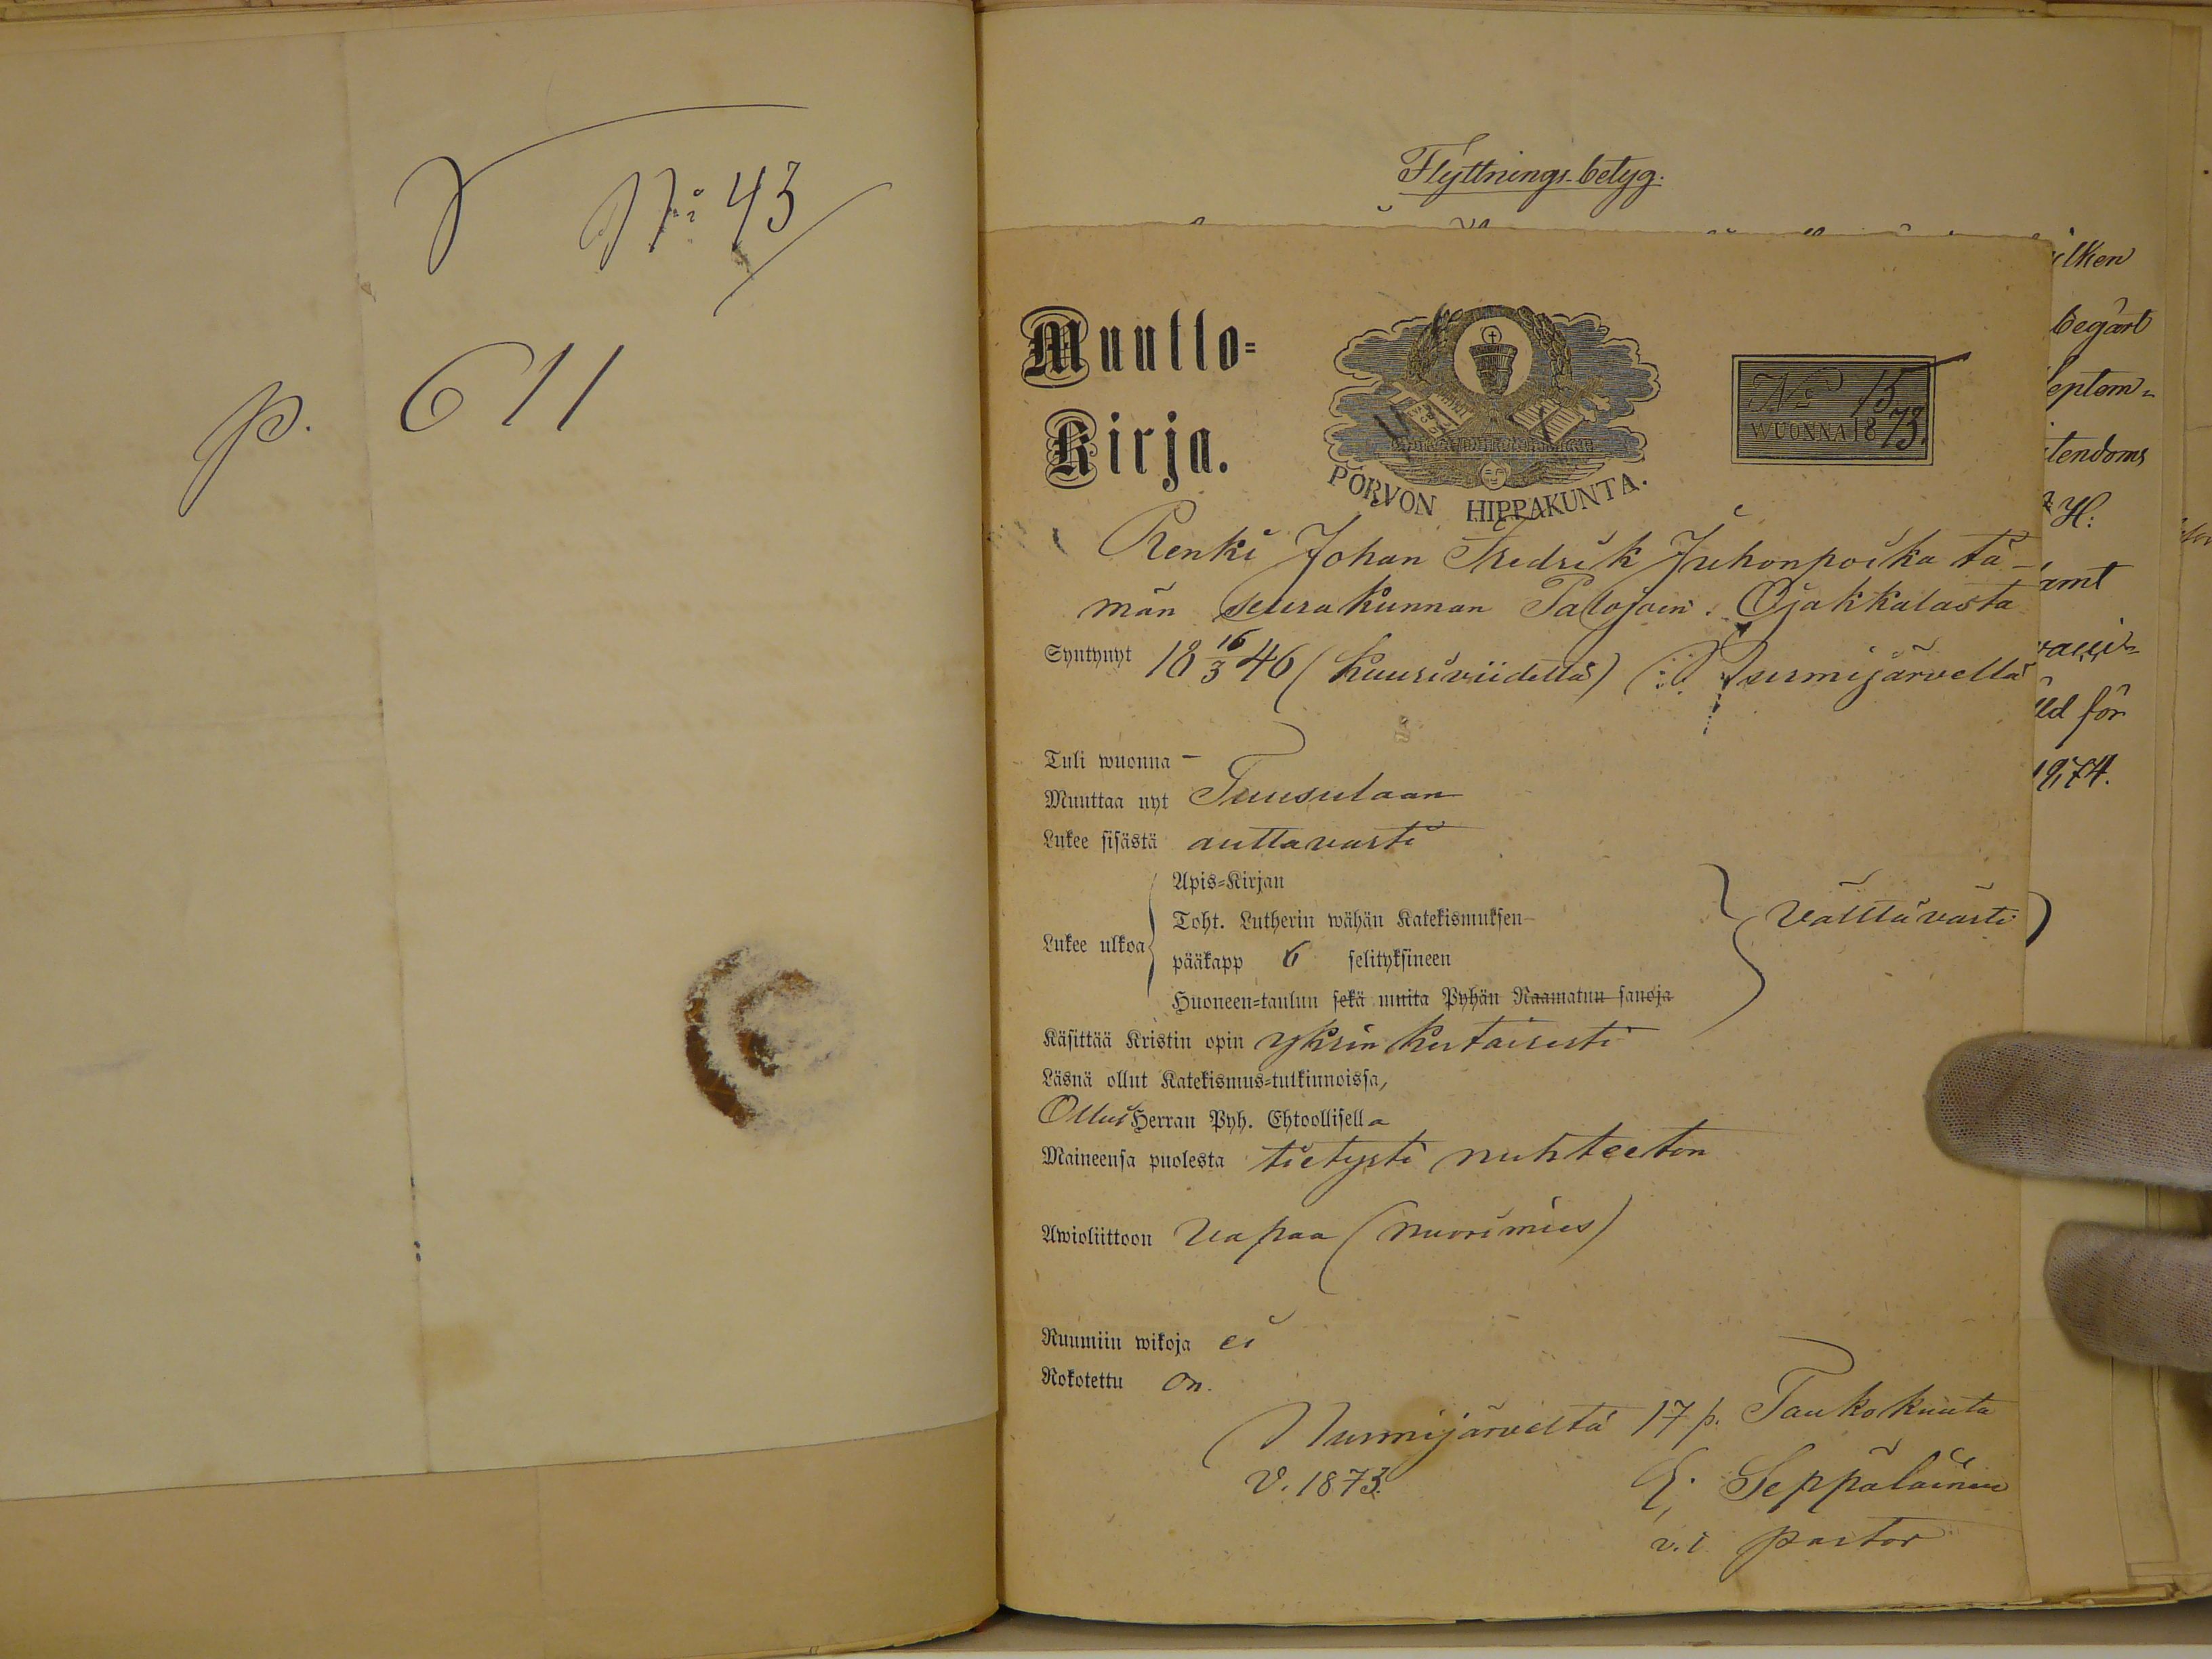 No: 43
p. 611
Flyttnings-betyg.
ilken
begärt
eptem-
stendoms
H:
amt
ld för
1974.
Muutto-
Kirja.
PORVON HIPPAKUNTA.
No 15
WUONNA 1873.
Renki Johan Fredrik Juhonpoika tä-
män seurakunnan Palojoen Ojakkalasta
Syntynyt 18 16/3 46 (kuusiviidettä) Nurmijärvellä
Tuli wuonna –
Muuttaa nyt Tuusulaan
Lukee sisästä auttavasti
Lukee ulkoa
Apis=Kirjan
Toht. Lutherin wähän Katekismuksen
pääkapp 6 selityksineen
Huoneen=taulun sekä muita Pyhän Raamatun sanoja
Välttävästi
Käsittää Kristin opin yksinkertaisesti
Läsnä ollut Katekismus=tutkinnoissa,
Ollut Herran Pyh. Ehtoollisella
Maineensa puolesta tietysti nuhteeton
Awioliittoon Vapaa (nuorimies)
Ruumiin wikoja ei
Rokotettu on.
Nurmijärveltä 17 p. Taukokuuta
V. 1873.
E. Seppäläinen
v. i. pastor